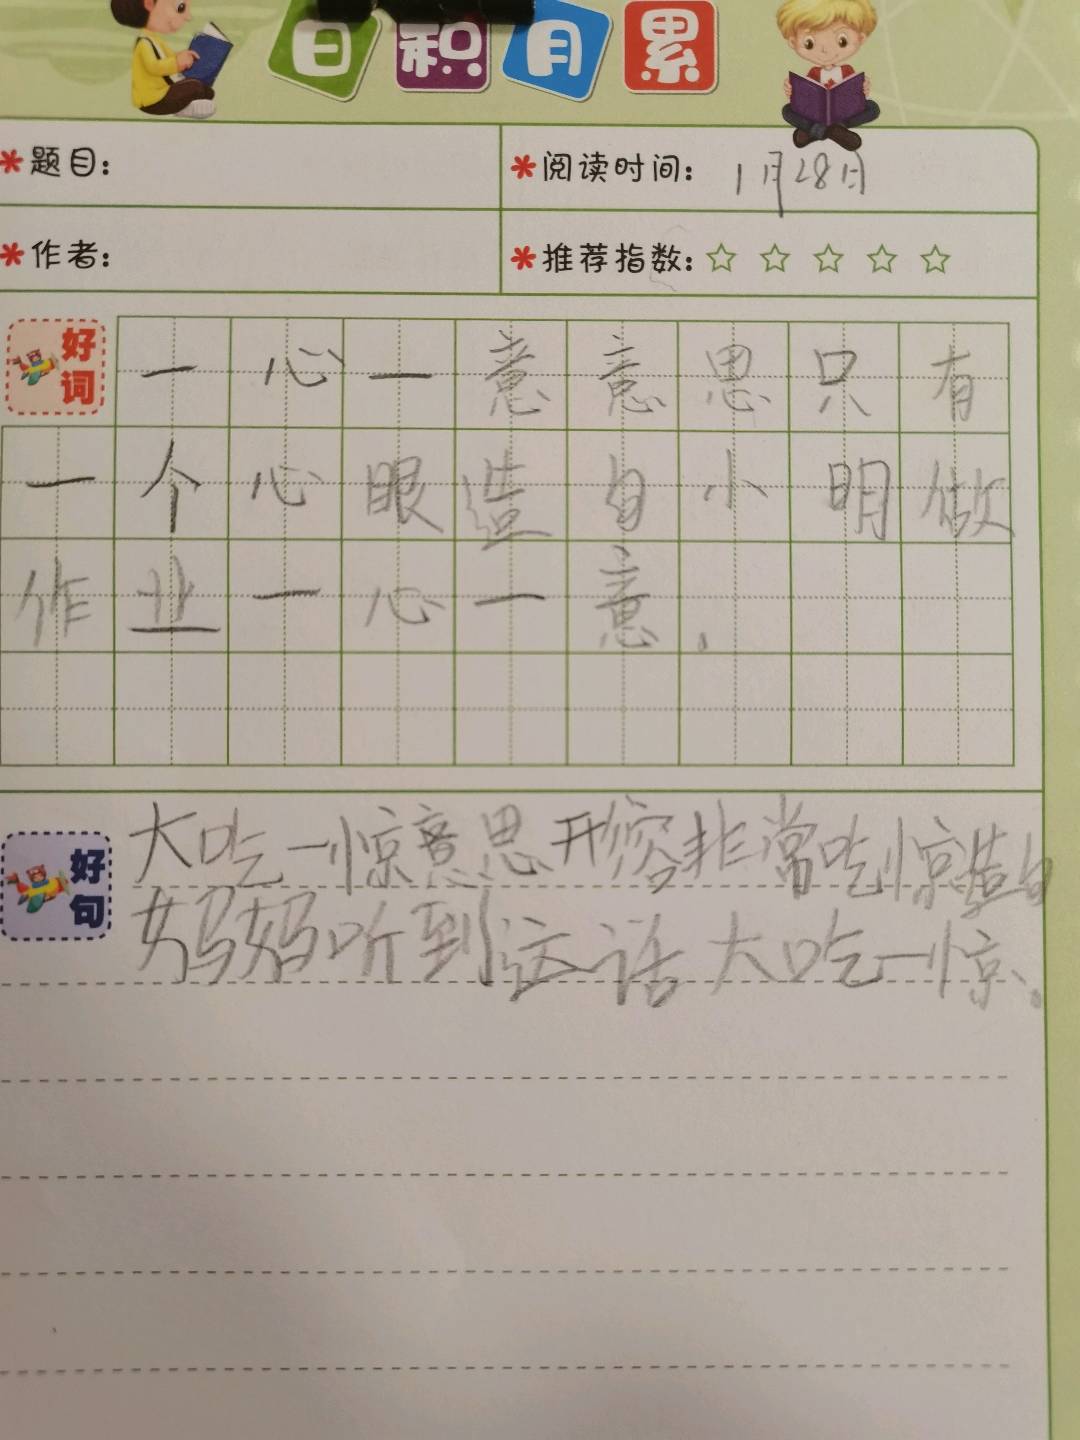 日积月累
题目：
阅读时间：1月28日
作者：
推荐指数：
好词
一心一意意思只有
一个心眼造自小明做
作业一心一意.
好句
大吃一惊意思形容非常吃惊造句
妈妈听到这话大吃一惊.